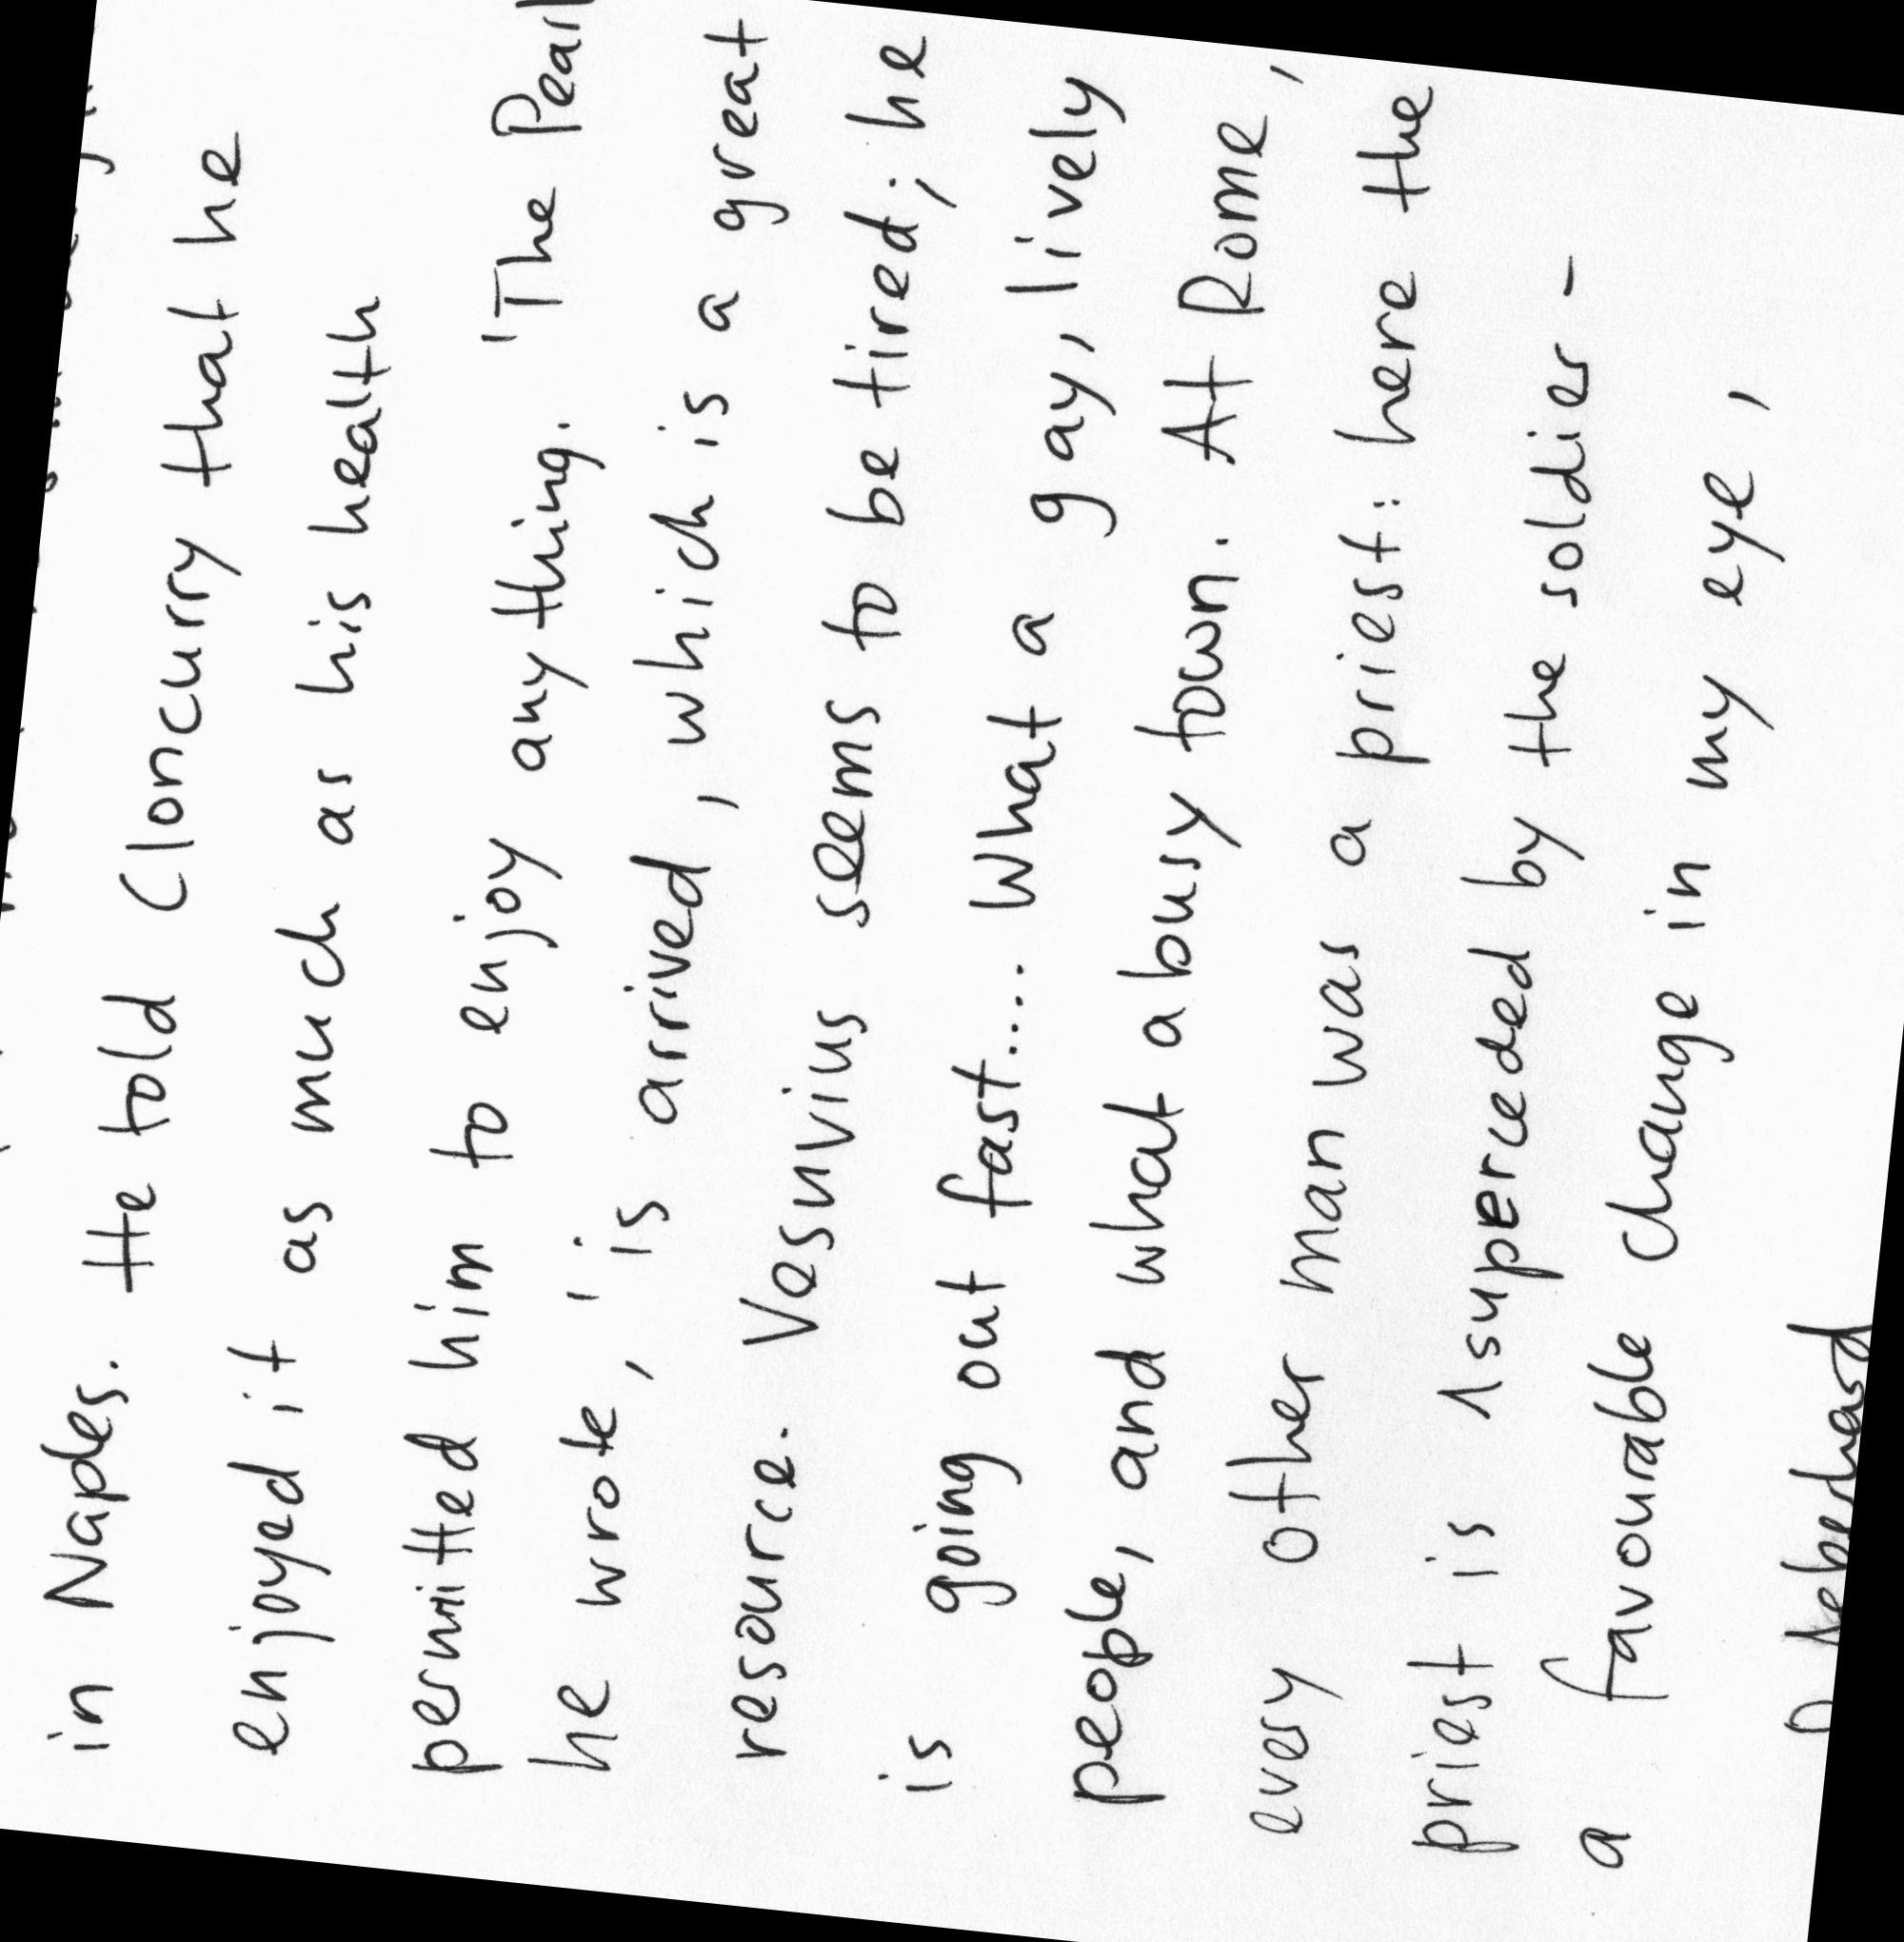 in Naples. He told Cloncurry that he
enjoyed it as much as his health
permitted him to enjoy any thing. 'The Pearl
he wrote, 'is arrived, which is a great
resource. Vesuvius seems to be tired; he
is going out fast.... What a gay, lively
people, and what a busy town. At Rome,
every other man was a priest: here the
priest is superceded by the soldier -
a favourable change in my eye,